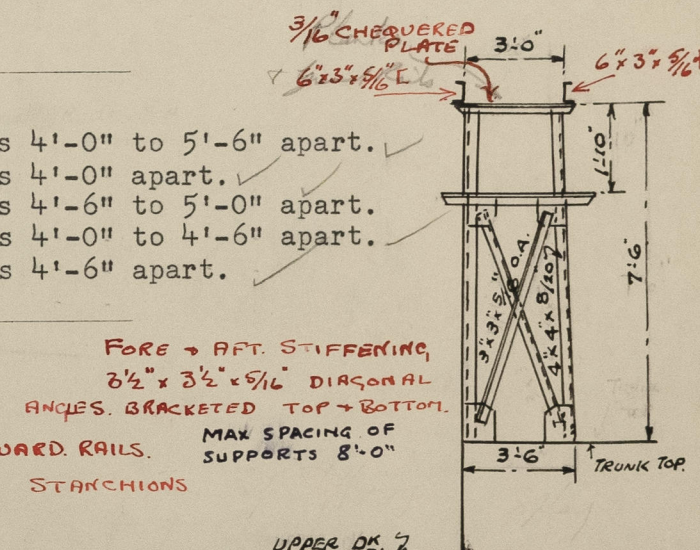 3/16" CHEQUERED
PLATE
3'-0"
6"x3"x5/16" [
6"x3"x5/16"
s 4'-0" to 5'-6" apart.
s 4'-0" apart.
s 4'-6" to 5'-0" apart.
s 4'-0" to 4'-6" apart.
s 4'-6" apart.
1'-10"
7'-6"
3"x3"x5/
O.A.
4"x4"x8/20
FORE & AFT. STIFFENING,
3½" x 3½" x 5/16" DIAGONAL
ANGLES. BRACKETED TOP & BOTTOM.
UARD. RAILS.
MAX SPACING OF
SUPPORTS 8'-0"
STANCHIONS
3'-6"
TRUNK TOP.
UPPER DK